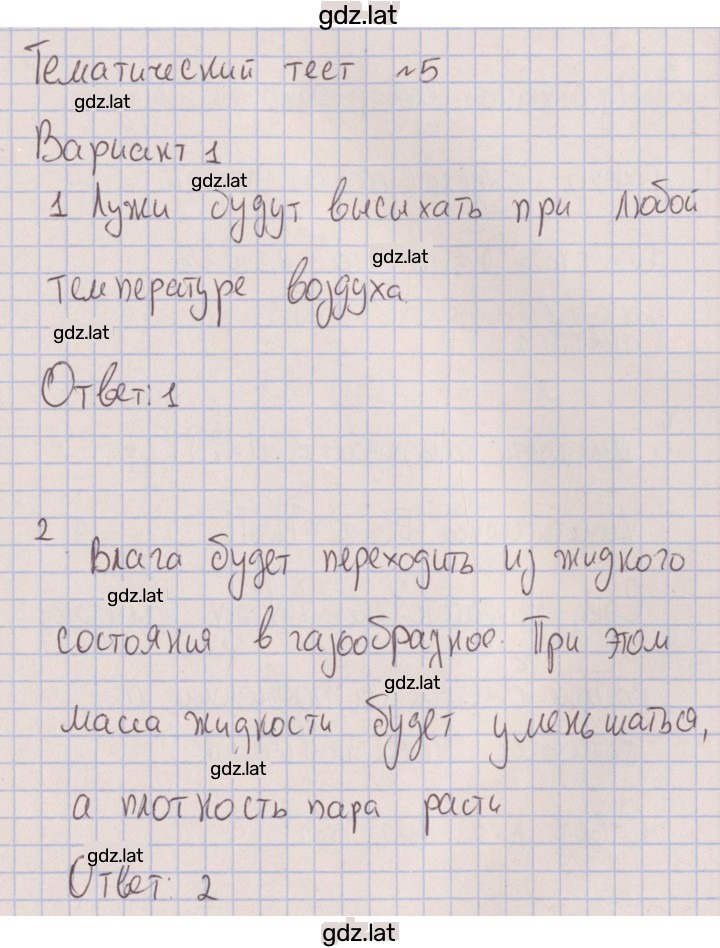 gdz.lat
Тематический тест №5
gdz.lat
Вариант 1
gdz.lat
1 Лужи будут высыхать при любой
gdz.lat
температуре воздуха.
gdz.lat
Ответ: 1
2 Влага будет переходить из жидкого
gdz.lat
состояния в газообразное. При этом
gdz.lat
масса жидкости будет уменьшаться,
gdz.lat
а плотность пара расти
gdz.lat
Ответ: 2
gdz.lat